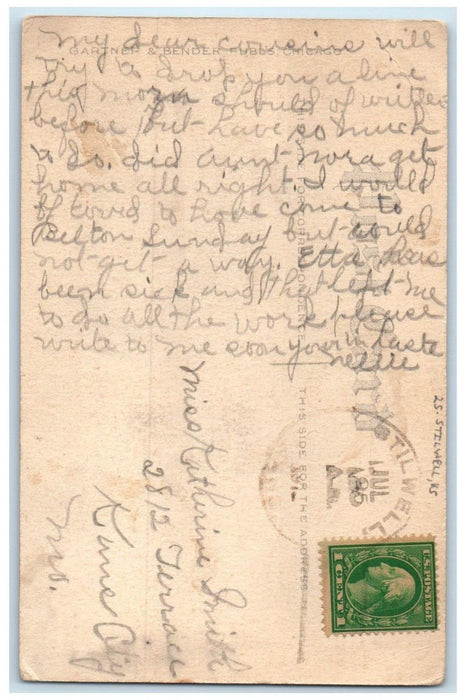 GARTNER & BENDER PUBLS, CHICAGO
My dear cousins will
try to drop you a line
this morn should of writen
before but have so much
to do. did aunt nora get
home all right. I would
of loved to have come to
Belton Sunday but could
not get a way. Etta has
been sick and that left me
to do all the work please
write to me soon your in haste
nellie
FOR CORRESPONDENCE
Post Card
THIS SIDE FOR THE ADDRESS
Miss Katherine Smith
2812 Terrace
Kans City
Mo.
STILWELL
JUL
25
A.M.
25. STILWELL, KS
U.S. POSTAGE
1 CENT 1